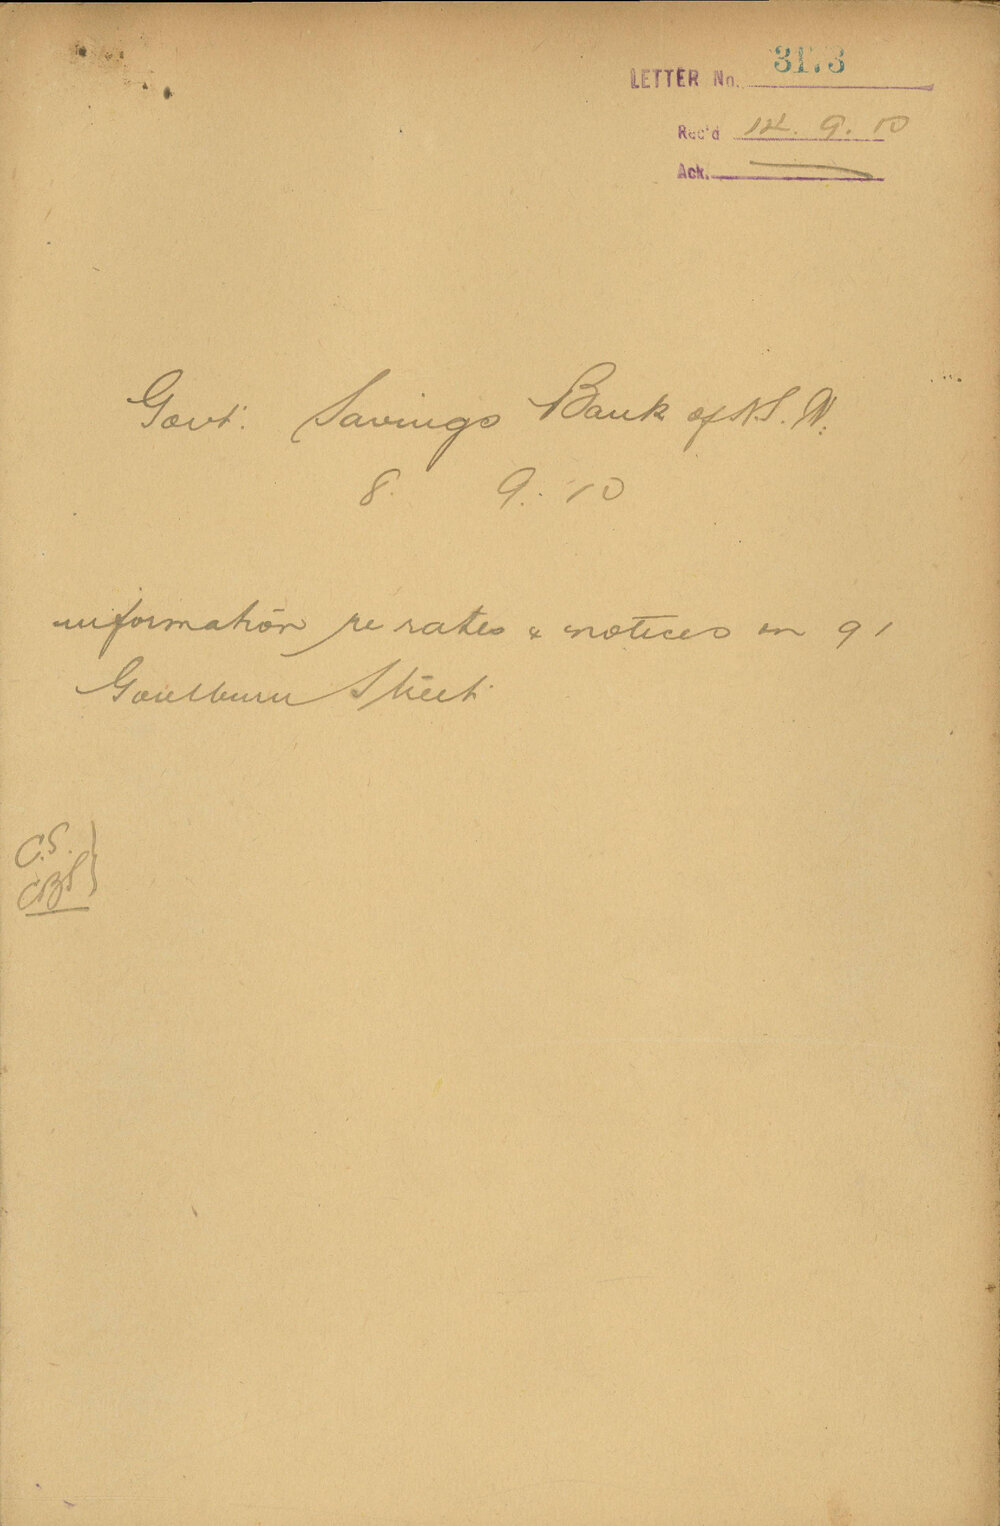 LETTER No. 3173
Rec'd 12. 9. 10
Ack.
Govt. Savings Bank of N.S.W.
8. 9. 10
information re rates & notices on 91
Goulburn Street
C.S.
CBS